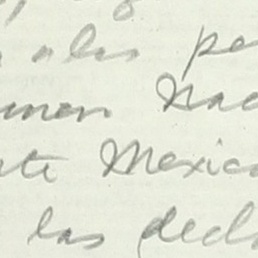 a las pe
men Nac
te Mexic
las decl